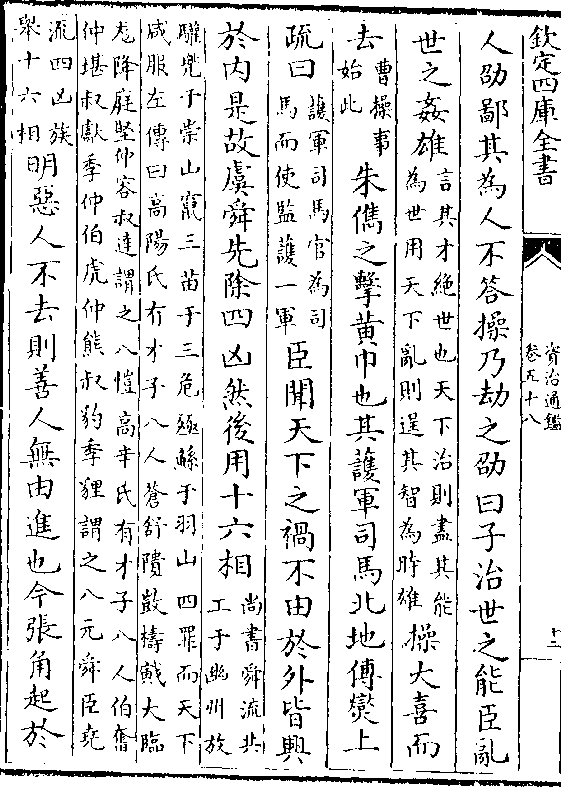 欽定四庫全書
資治通鑑
卷五十八
十二
人劭鄙其為人不答操乃劫之劭曰子治世之能臣亂
世之姦雄
言其才絶世也天下治則盡其能
為世用天下亂則逞其智為時雄
操大喜而
去
曹操事
始此
朱儁之擊黄巾也其護軍司馬北地傅燮上
疏曰
護軍司馬官為司
馬而使監護一軍
臣聞天下之禍不由於外皆興
於内是故虞舜先除四凶然後用十六相
尚書舜流共
工于幽州放
驩兜于崇山竄三苗于三危殛鯀于羽山四罪而天下
咸服左傳曰高陽氏有才子八人蒼舒隤敱檮戭大臨
尨降庭堅仲容叔達謂之八愷高辛氏有才子八人伯奮
仲堪叔獻季仲伯虎仲熊叔豹季貍謂之八元舜臣堯
流四凶族
舉十六相
明惡人不去則善人無由進也今張角起於